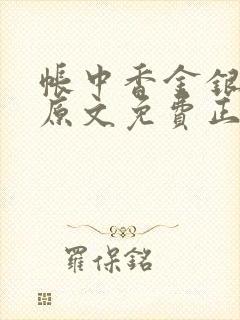 帳中香金銀
原文免費正
羅保銘